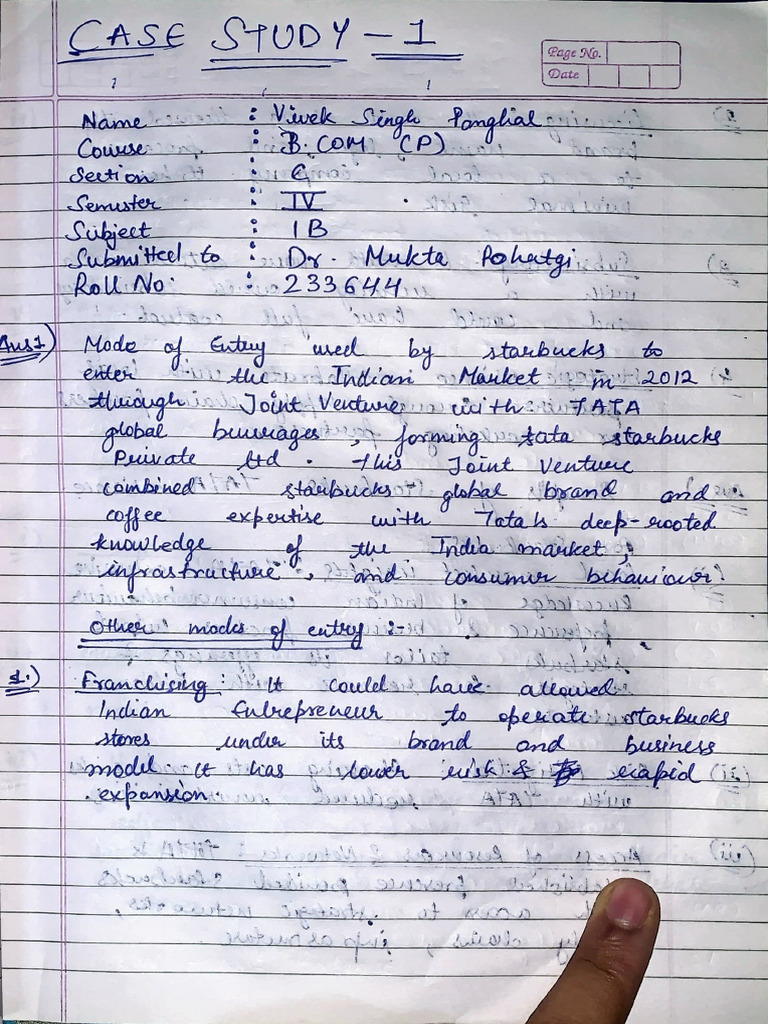 CASE STUDY - 1
Page No.
Date
Name : Vivek Singh Panghal
Course : B.COM (P)
Section : C
Semester : IV
Subject : IB
Submitted to : Dr. Mukta Rohatgi
Roll No. : 233644
Ans1) Mode of Entry used by starbucks to
enter the Indian Market in 2012
through Joint Venture with TATA
global beverages, forming tata starbucks
Private Ltd. This Joint Venture
combined starbucks global brand and
coffee expertise with Tata's deep-rooted
knowledge of the India market,
infrastructure, and consumer behaviour.
Other modes of entry :-
1.) Franchising: It could have allowed
Indian Entrepreneur to operate starbucks
stores under its brand and business
model. It has lower risk & rapid
expansion.